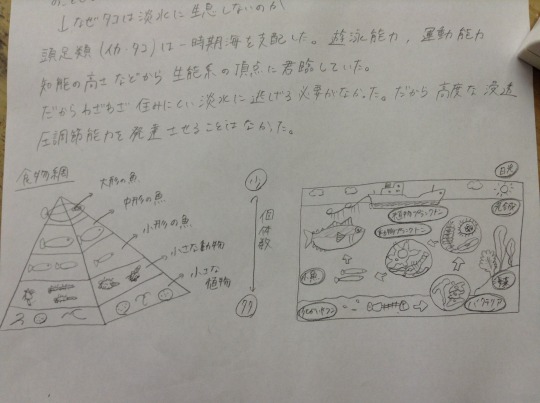 ↓なぜタコは淡水に生息しないのか
頭足類(イカ・タコ)は一時期海を支配した。遊泳能力、運動能力
知能の高さなどから生態系の頂点に君臨していた。
だからわざわざ住みにくい淡水に逃げる必要がなかった。だから高度な浸透
圧調節能力を発達させることはなかった。
食物網
大形の魚
中形の魚
小形の魚
小さな動物
小さな植物
少
個体数
多
日光
光合成
植物プランクトン
動物プランクトン
小魚
海藻
バクテリア